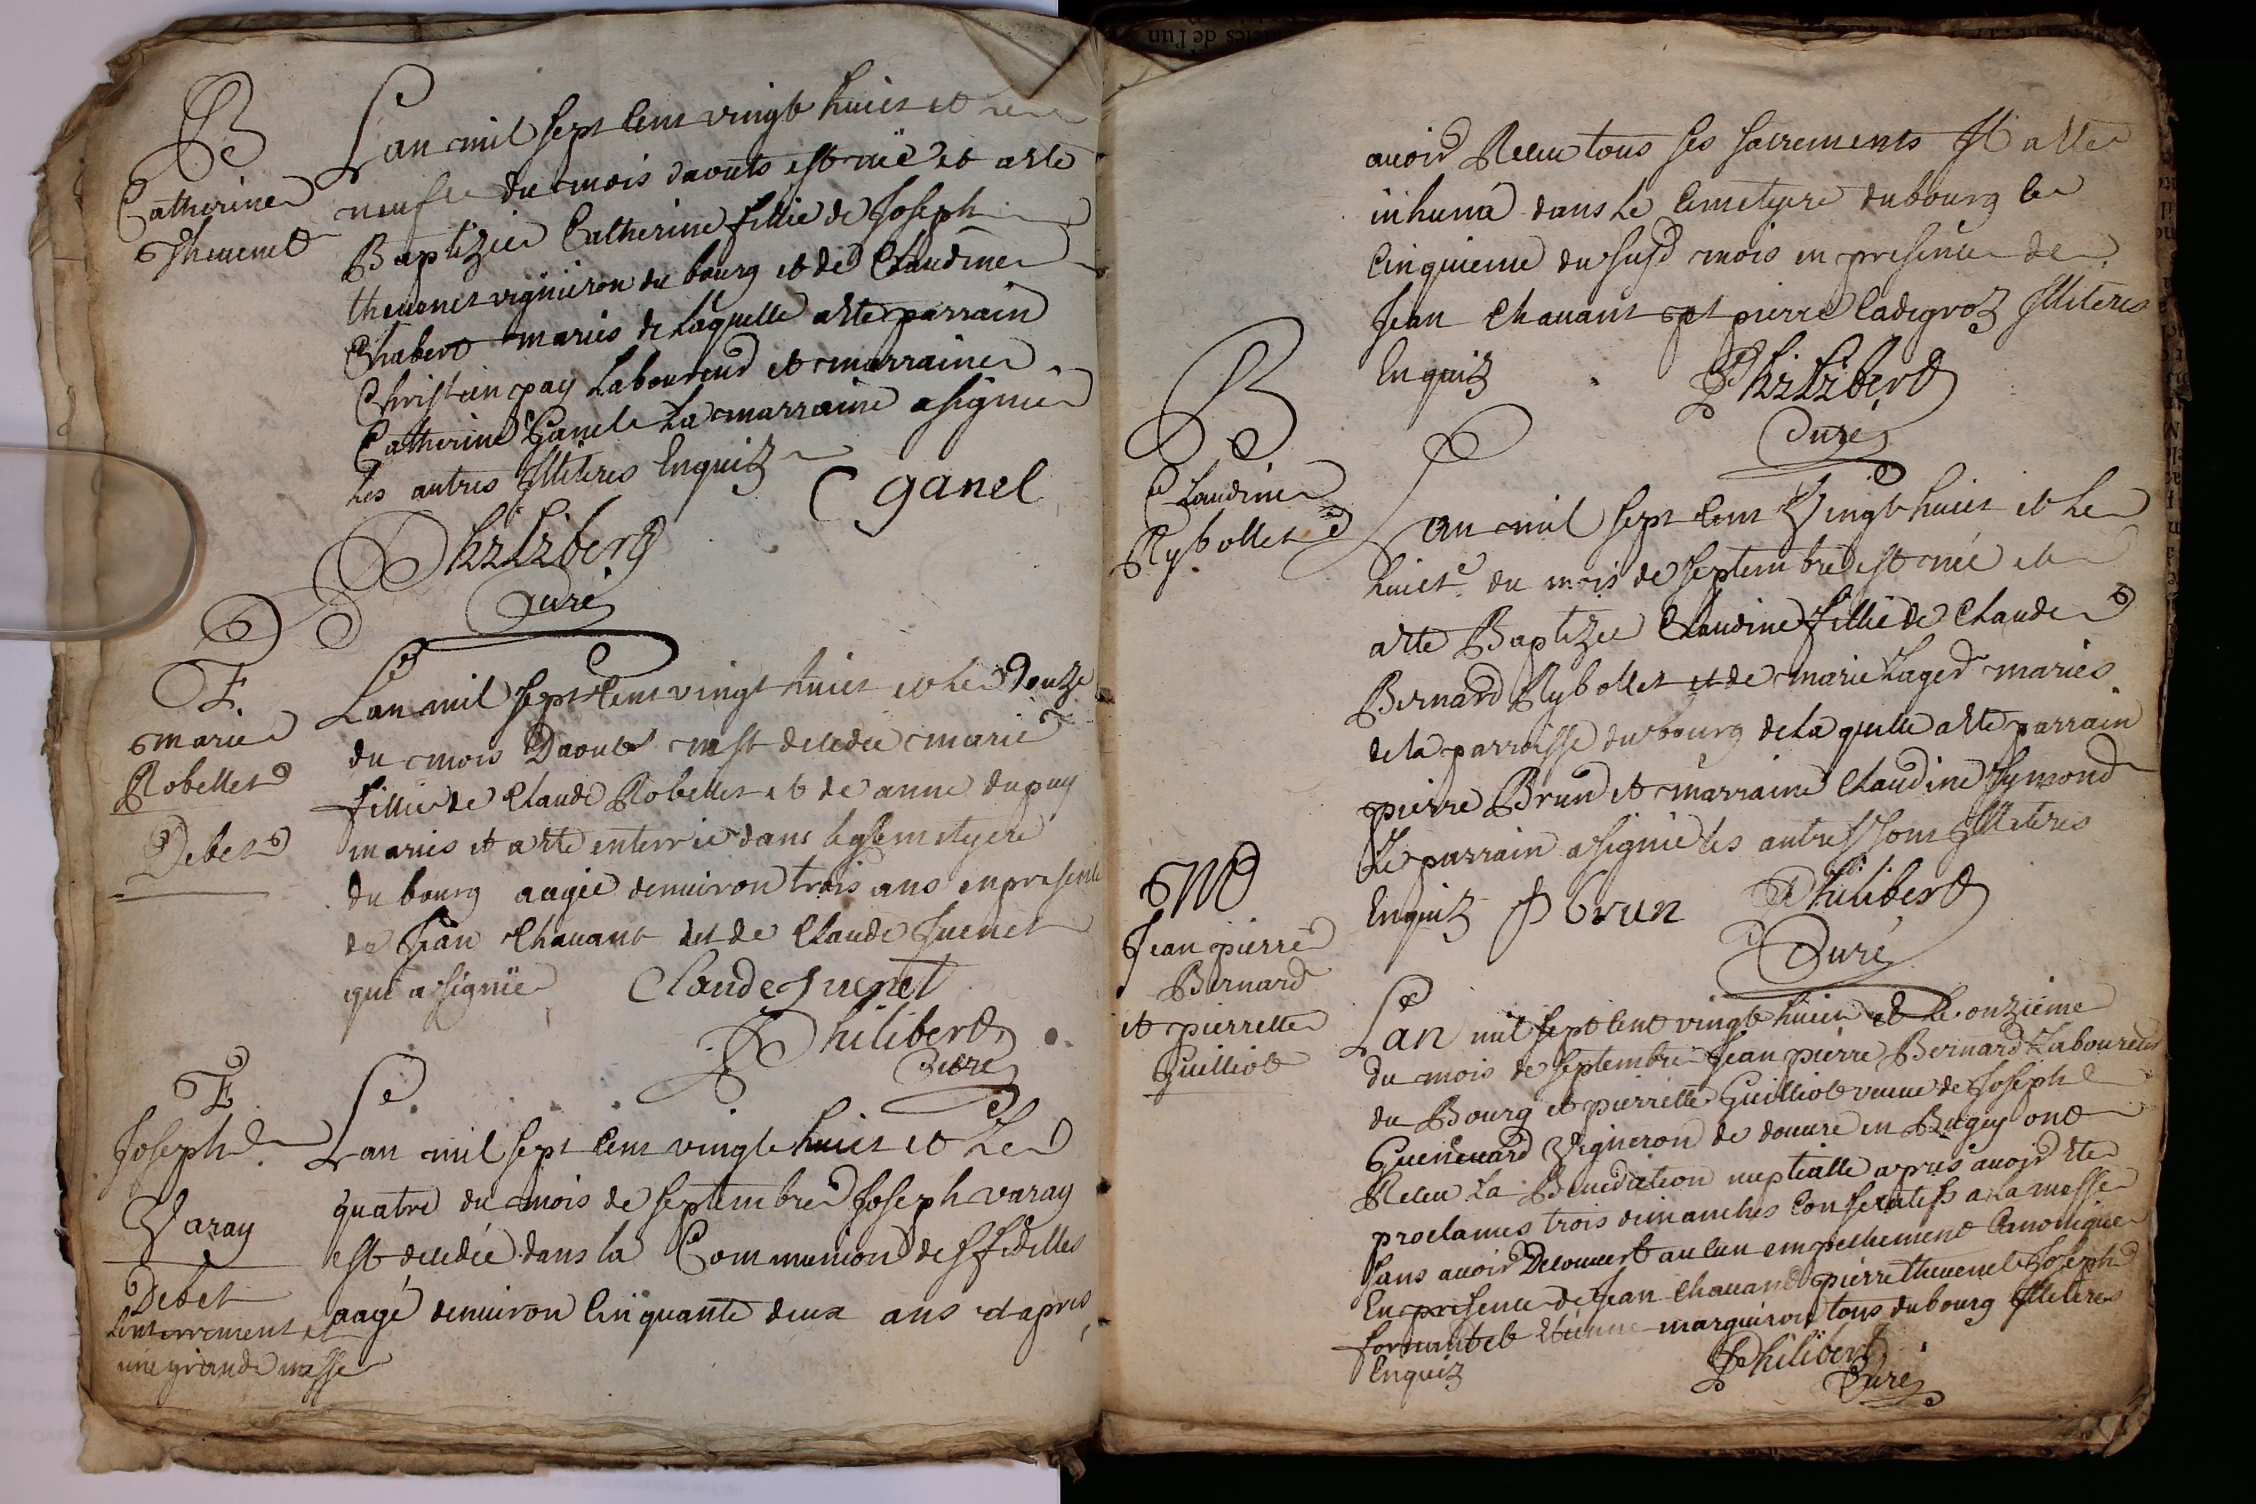 B
Catherine
Thevenet
Lan mil sept Cent vingt huict et Le
neufe du mois daouts est néé et a été
Baptizée Catherine fillie de Joseph
thevenet vignieron du bourg et de Claudine
Chabert mariés de Laquelle a été parrain
Christin pay Laboureur et marraine
Catherine Ganel La marraine a signié
Les autres Illiteres Enquis
C ganel
Philibert
Curé
E
marie
Robellet
Debet
Lan mil sept Cent vingt huict et Le douze
du mois Daouts est decedée marie
fillie de Claude Robellet et de anne dupuy
mariés et a été enterrée dans le Cemetyere
du bourg aagée denviron trois ans en presence
de Jean Chavant et de Claude Juenet
qui a signié
Claude Juenet
Philibert
Curé
E
Joseph
Varay
Debet
Lenterrement et
une grande messe
Lan mil sept Cent vingt huict et Le
quatre du mois de septembre Joseph varay
est decedée dans la Communion des fidelles
aagé denviron Cinquante deux ans et apres
avoir Receu tous ses sacrements Il a été
inhumá dans Le Cemetyere du bourg le
Cinquieme du susd mois en presence de
Jean Chavant et pierre Cadegroz Illiteres
Enquis
Philibert
Curé
B
Claudine
Rybollet
Lan mil sept Cent Vingt huict et Le
huicte du mois de septembre est néé et
a été Baptizée Claudine fillie de Claude
Bernard Rybollet et de marie Lager mariés
de la parroisse du bourg de La quelle a été parrain
pierre Brun et marraine Claudine Symond
Le parrain a signié les autres sont Illiteres
Enquis
P brun
Philibert
Curé
M
Jean pierre
Bernard
et pierrette
Guilliot
Lan mil sept Cent vingt huict et Le onzieme
du mois de septembre Jean pierre Bernard Laboureur
du Bourg et pierrette Guilliot veuve de Joseph
Guenevard Vigneron de douvre en Bugey ont
Receu La Benediction nuptialle apres avoir été
proclamés trois dimanches Consecutifs a La messe
sans avoir Decouvert aucun empechement Canonique
En presence de Jean Chavand pierre thevenet Joseph
et Etienne marguiron tous du bourg Illiteres
Enquis
Philibert
Curé